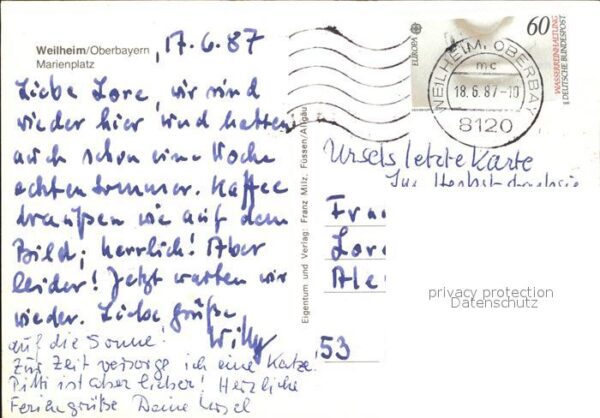 Weilheim/Oberbayern
Marienplatz
17.6.87
Liebe Lore, wir sind
wieder hier und hatten
auch schon eine Woche
echten Sommer. Kaffee
draußen wie auf dem
Bild; herrlich! Aber
leider! Jetzt warten wir
wieder. Liebe Grüße
Willy
auf die Sonne!
Zur Zeit versorge ich eine Katze!
Pitti ist aber lieber! Herzliche
Feriengrüße Deine Ursel
Eigentum und Verlag: Franz Milz, Füssen/Allgäu
EUROPA
60
WASSERREINHALTUNG
DEUTSCHE BUNDESPOST
WEILHEIM, OBERBAY
mc
18.6.87-10
8120
Ursels letzte Karte
Frau
Lore
Ale
53
privacy protection
Datenschutz